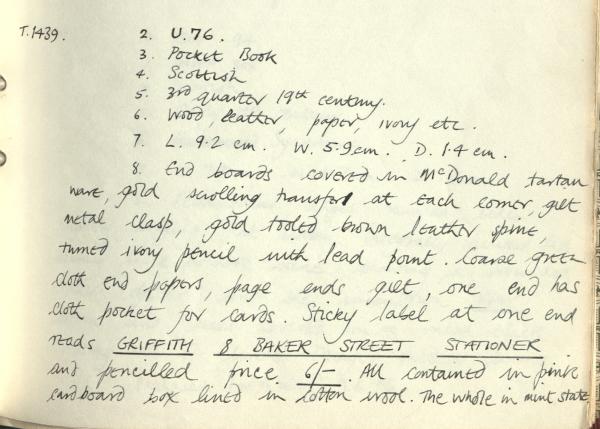 T.1439. 2. U.76.
3. Pocket Book
4. Scottish
5. 3rd quarter 19th century.
6. Wood, leather, paper, ivory etc.
7. L. 9.2 cm. W. 5.9 cm. D. 1.4 cm.
8. End boards covered in McDonald tartan
ware, gold scrolling transfer at each corner, gilt
metal clasp, gold tooled brown leather spine,
turned ivory pencil with lead point. Coarse green
cloth end papers, page ends gilt, one end has
cloth pocket for cards. Sticky label at one end
reads GRIFFITH 8 BAKER STREET STATIONER
and pencilled price 6/-. All contained in pink
cardboard box lined in cotton wool. The whole in mint state